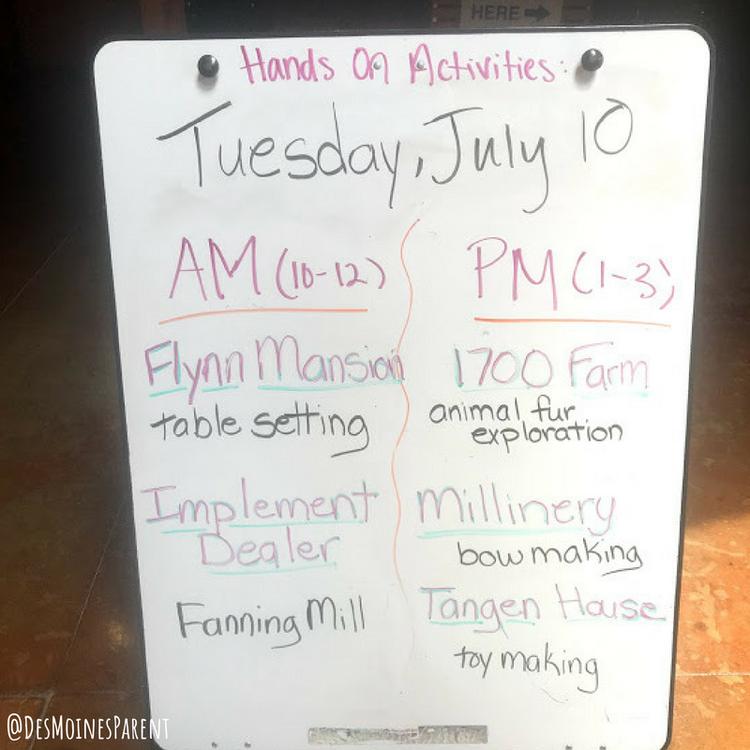 HERE →
Hands On Activities:
Tuesday, July 10
AM (10-12)
Flynn Mansion
table setting
Implement
Dealer
Fanning Mill
PM (1-3)
1700 Farm
animal fur
exploration
Millinery
bow making
Tangen House
toy making
@DesMoinesParent